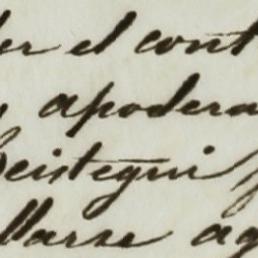 er el cont
apodera
Beistegui
llarse ag